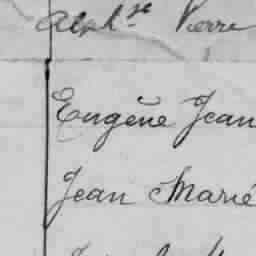 Alph.se Pierre
Eugène Jean
Jean Marié